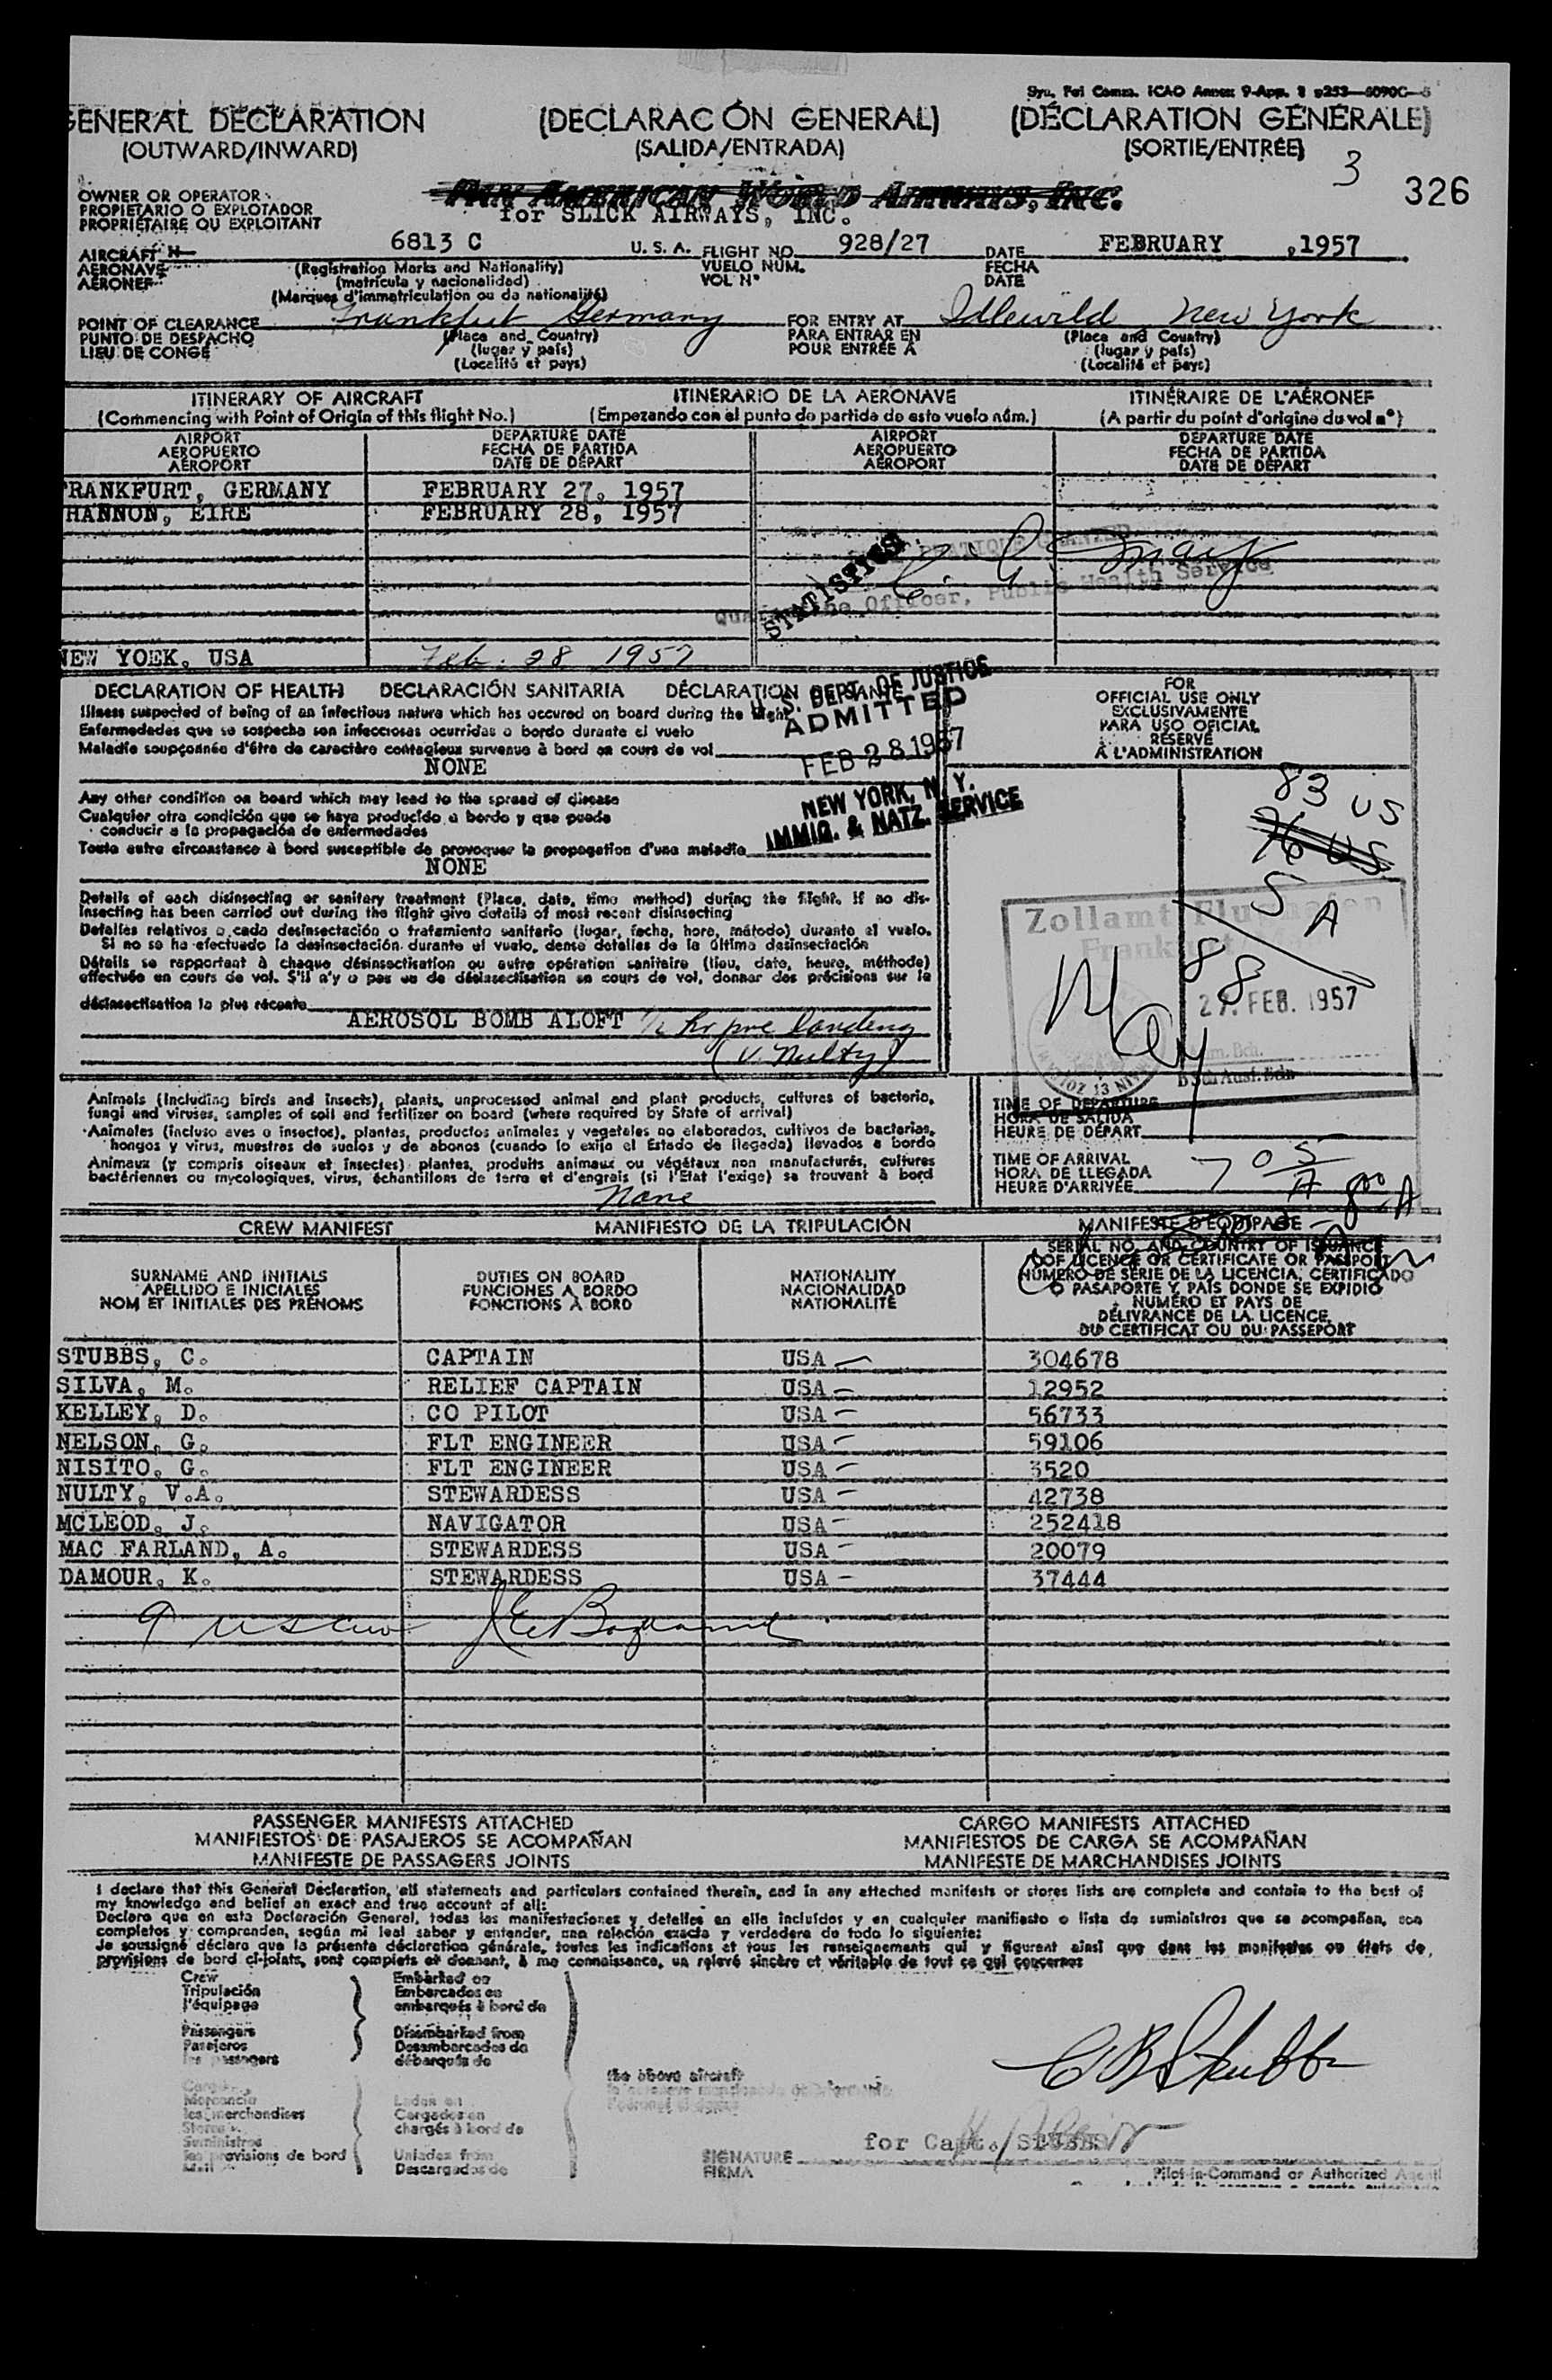 GENERAL DECLARATION (DECLARACIÓN GENERAL) (DÉCLARATION GÉNÉRALE)
(OUTWARD/INWARD) (SALIDA/ENTRADA) (SORTIE/ENTRÉE)
3
326
OWNER OR OPERATOR PAN AMERICAN WORLD AIRWAYS, INC.
PROPIETARIO O EXPLOTADOR for SLICK AIRWAYS, INC.
PROPRIÉTAIRE OU EXPLOITANT
AIRCRAFT N 6813 C U. S. A. FLIGHT NO. 928/27 DATE FEBRUARY ,1957
AERONAVE (Registration Marks and Nationality) VUELO NÚM. FECHA
AÉRONEF (matrícula y nacionalidad) VOL Nº DATE
(Marques d'immatriculation ou da nationalité)
POINT OF CLEARANCE Frankfurt Germany FOR ENTRY AT Idlewild New York
PUNTO DE DESPACHO (Place and Country) PARA ENTRAR EN (Place and Country)
LIEU DE CONGÉ (lugar y país) POUR ENTRÉE À (lugar y país)
(Localité et pays) (Localité et pays)
ITINERARY OF AIRCRAFT ITINERARIO DE LA AERONAVE ITINÉRAIRE DE L'AÉRONEF
(Commencing with Point of Origin of this flight No.) (Empezando con el punto de partida de este vuelo núm.) (A partir du point d'origine du vol nº)
AIRPORT DEPARTURE DATE AIRPORT DEPARTURE DATE
AEROPUERTO FECHA DE PARTIDA AEROPUERTO FECHA DE PARTIDA
AÉROPORT DATE DE DÉPART AÉROPORT DATE DE DÉPART
FRANKFURT, GERMANY FEBRUARY 27, 1957
HANNON, EIRE FEBRUARY 28, 1957
STATISTICS
PRATIQUE GRANTED
Quarantine Officer, Public Health Service
NEW YOEK, USA Feb. 28 1957
DECLARATION OF HEALTH DECLARACIÓN SANITARIA DÉCLARATION DE SANTÉ
Illness suspected of being of an infectious nature which has occured on board during the flight
Enfermedades que se sospecha son infecciosas ocurridas a bordo durante el vuelo
Maladie soupçonnée d'être de caractère contagieux survenue à bord en cours de vol
NONE
U. S. DEPT. OF JUSTICE
ADMITTED
FEB 28 1957
NEW YORK, N. Y.
IMMIG. & NATZ. SERVICE
FOR
OFFICIAL USE ONLY
EXCLUSIVAMENTE
PARA USO OFICIAL
RÉSERVÉ
À L'ADMINISTRATION
83 US
76 US
5 A
88
Any other condition on board which may lead to the spread of disease
Cualquier otra condición que se haya producido a bordo y que pueda
conducir a la propagación de enfermedades
Toute autre circonstance à bord susceptible de provoquer la propagation d'une maladie
NONE
Details of each disinsecting or sanitary treatment (Place, date, time method) during the flight. If no dis-
insecting has been carried out during the flight give details of most recent disinsecting
Detalles relativos a cada desinsectación o tratamiento sanitario (lugar, fecha, hora, método) durante el vuelo.
Si no se ha efectuado la desinsectación durante el vuelo, dense detalles de la última desinsectación
Détails se rapportant à chaque désinsectisation ou autre opération sanitaire (lieu, date, heure, méthode)
effectuée en cours de vol. S'il n'y a pas eu de désinsectisation en cours de vol, donner des précisions sur la
désinsectisation la plus récente
AEROSOL BOMB ALOFT 1/2 hr pre landing
(V. Nulty)
Zollamt Flughafen
Frankfurt
27. FEB. 1957
Animals (including birds and insects), plants, unprocessed animal and plant products, cultures of bacteria,
fungi and viruses, samples of soil and fertilizer on board (where required by State of arrival)
Animales (incluso aves o insectos), plantas, productos animales y vegetales no elaborados, cultivos de bacterias,
hongos y virus, muestras de suelos y de abonos (cuando lo exija el Estado de llegada) llevados a bordo
Animaux (y compris oiseaux et insectes) plantes, produits animaux ou végétaux non manufacturés, cultures
bactériennes ou mycologiques, virus, échantillons de terre et d'engrais (si l'État l'exige) se trouvant à bord
None
TIME OF DEPARTURE
HORA DE SALIDA
HEURE DE DÉPART
TIME OF ARRIVAL
HORA DE LLEGADA
HEURE D'ARRIVÉE
7 05 A
8 00 A
CREW MANIFEST MANIFIESTO DE LA TRIPULACIÓN MANIFESTE D'ÉQUIPAGE
SURNAME AND INITIALS
APELLIDO E INICIALES
NOM ET INITIALES DES PRÉNOMS
DUTIES ON BOARD
FUNCIONES A BORDO
FONCTIONS À BORD
NATIONALITY
NACIONALIDAD
NATIONALITÉ
SERIAL NO. AND COUNTRY OF ISSUANCE
OF LICENCE OR CERTIFICATE OR PASSPORT
NÚMERO DE SERIE DE LA LICENCIA, CERTIFICADO
O PASAPORTE Y PAÍS DONDE SE EXPIDIÓ
NUMÉRO ET PAYS DE
DÉLIVRANCE DE LA LICENCE,
DU CERTIFICAT OU DU PASSEPORT
STUBBS, C. CAPTAIN USA 304678
SILVA, M. RELIEF CAPTAIN USA 12952
KELLEY, D. CO PILOT USA 56733
NELSON, G. FLT ENGINEER USA 59106
NISITO, G. FLT ENGINEER USA 3520
NULTY, V.A. STEWARDESS USA 42738
MCLEOD, J. NAVIGATOR USA 252418
MAC FARLAND, A. STEWARDESS USA 20079
DAMOUR, K. STEWARDESS USA 37444
9
PASSENGER MANIFESTS ATTACHED CARGO MANIFESTS ATTACHED
MANIFIESTOS DE PASAJEROS SE ACOMPAÑAN MANIFIESTOS DE CARGA SE ACOMPAÑAN
MANIFESTE DE PASSAGERS JOINTS MANIFESTE DE MARCHANDISES JOINTS
I declare that this General Declaration, all statements and particulars contained therein, and in any attached manifests or stores lists are complete and contain to the best of
my knowledge and belief an exact and true account of all:
Declaro que en esta Declaración General, todas las manifestaciones y detalles en ella incluídos y en cualquier manifiesto o lista de suministros que se acompañan, son
completos y comprenden, según mi leal saber y entender, una relación exacta y verdadera de todo lo siguiente:
Je soussigné déclare que la présente déclaration générale, toutes les indications et tous les renseignements qui y figurent ainsi que dans les manifestes ou états de
provisions de bord ci-joints, sont complets et donnent, à ma connaissance, un relevé sincère et véritable de tout ce qui concerne:
Crew Embarked on
Tripulación Embarcados en
l'équipage embarqués à bord de
Passengers Disembarked from
Pasajeros Desembarcados de
les passagers débarqués de
the above aircraft
Cargo
Mercancía Laden on
les merchandises Cargados en
Stores chargés à bord de
Suministros
les provisions de bord Unladen from
Mail Descargados de
C B Stubbs
for Capt. STUBBS
SIGNATURE
FIRMA
Pilot-in-Command or Authorized Agent